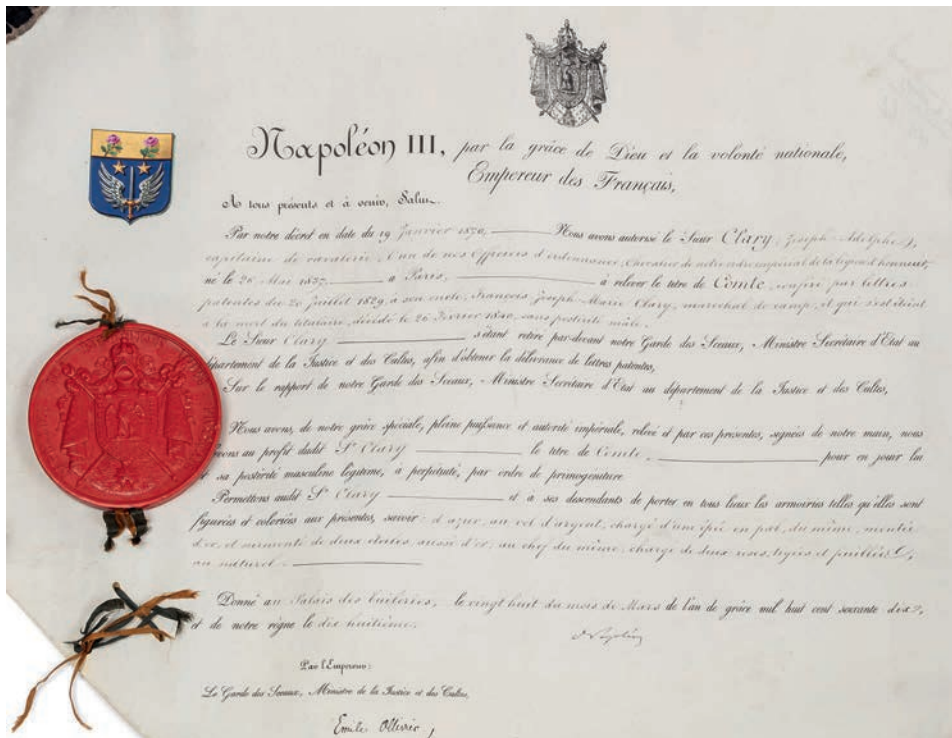 Napoléon III, par la grâce de Dieu et la volonté nationale,
Empereur des Français,
A tous présents et à venir, Salut.
Par notre décret en date du 19 Janvier 1870, Nous avons autorisé le Sieur Clary (Joseph-Adelphe),
capitaine de cavalerie, l'un de nos Officiers d'ordonnance, Chevalier de notre ordre impérial de la légion d'honneur,
né le 26 Mai 1837 à Paris, à relever le titre de Comte, conféré par lettres
patentes du 20 Juillet 1829, à son oncle, François Joseph Marie Clary, maréchal de camp, et qui s'est éteint
à la mort du titulaire, décédé le 26 Février 18, sans postérité mâle.
Le Sieur Clary s'étant retiré par-devant notre Garde des Sceaux, Ministre Secrétaire d'Etat au
département de la Justice et des Cultes, afin d'obtenir la délivrance de lettres patentes,
Sur le rapport de notre Garde des Sceaux, Ministre Secrétaire d'Etat au département de la Justice et des Cultes,
Nous avons, de notre grâce spéciale, pleine puissance et autorité impériale, relevé et par ces présentes, signées de notre main, nous
vons au profit dudit Sr. Clary le titre de Comte, pour en jouir lui
et sa postérité masculine légitime, à perpétuité, par ordre de primogéniture
Permettons audit Sr. Clary et à ses descendants de porter en tous lieux les armoiries telles qu'elles sont
figurées et coloriées aux présentes, savoir: d'azur, au vol d'argent, chargé d'une épée en pal, du même, montée
d'or, et surmonté de deux étoiles, aussi d'or; au chef du même, chargé de deux roses, tigées et feuillées,
au naturel.
Donné au Palais des Tuileries, le vingt huit du mois de Mars de l'an de grâce mil huit cent soixante dix,
et de notre règne le dix huitième.
Napoléon
Par l'Empereur:
Le Garde des Sceaux, Ministre de la Justice et des Cultes,
Emile Ollivier